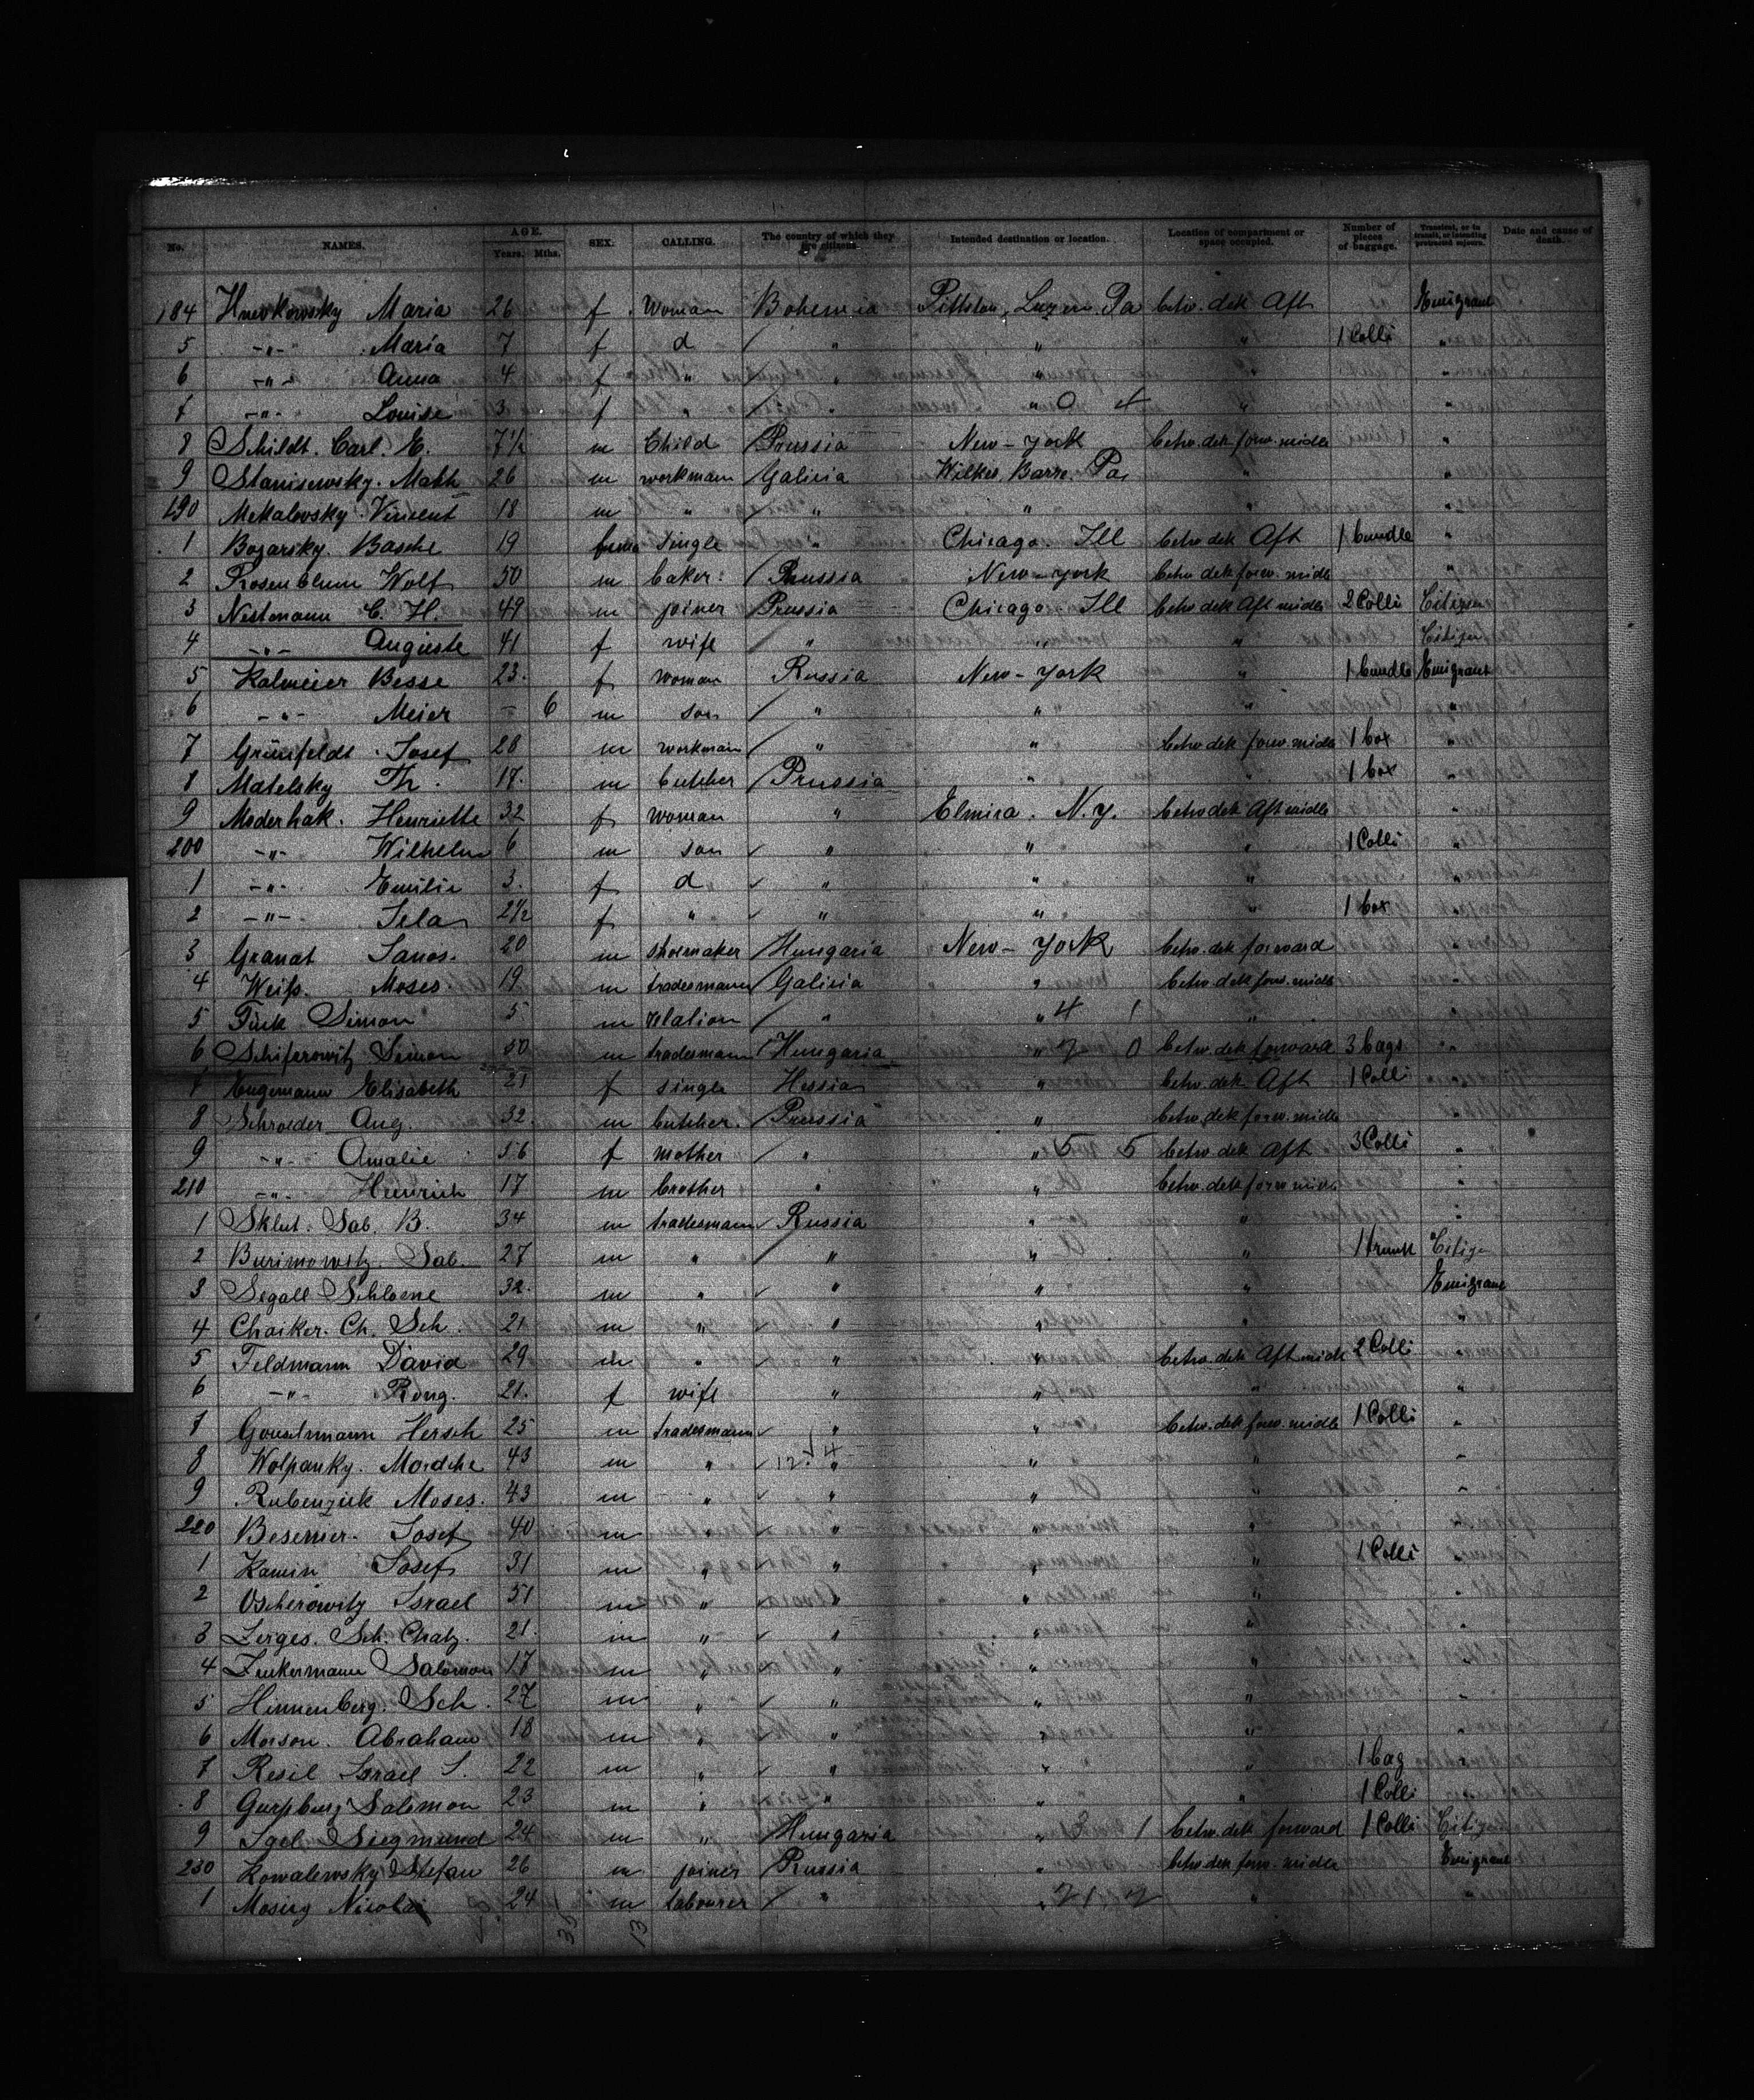 No. NAMES. AGE. Years. Mths. SEX. CALLING. The country of which they are citizens. Intended destination or location. Location of compartment or space occupied. Number of pieces of baggage. Transient, or in transit, or intending protracted sojourn. Date and cause of death.
184 Hnevkowsky Maria 26 f Woman Bohemia Pittston, Luzern. Pa betw. dek Aft Emigrant
5 -"- Maria 7 f d / " " " 1 Colli "
6 -"- Anna 4 f " / " " " "
7 -"- Louise 3 f " / " " 0 4 " "
8 Schildt. Carl. E. 7 1/2 m Child / Prussia New-York betw. dek forw. midle "
9 Stanisewsky. Math 26 m workmann / Galicia Wilkes. Barre. Pa. " "
190 Mekalovsky Vincent 18 m " / " " " "
1 Bozarsky. Basche 19 fema single " Chicago. Ill betw dek Aft 1 bundle "
2 Rosenblum Wolf 50 m baker / Prussia New-york betw dek forw. midle "
3 Nestmann C. H. 49 m joiner / Prussia Chicago. Ill betw dek Aft midle 2 Colli Citizen
4 -"- Auguste 41 f wife / " " " Citizen
5 Kalmeier Besse 23. f woman Russia New-York " 1 bundle Emigrant
6 -"- Meier - 6 m son / " " "
7 Grünfeldt Josef 28 m workmann / " " betw dek forw midle 1 box "
8 Matelsky Th. 17. m butcher / Prussia " " 1 box "
9 Moderhak. Henriette 32 f woman " Elmira. N.y. betw dek Aft midle "
200 -"- Wilhelm 6 m son / " " " 1 Colli "
1 -"- Emilie 3. f d / " " " "
2 -"- Ida 2 1/2 f " / " " " 1 box "
3 Granat Janos. 20 m shoemaker / Hungaria New-York betw. dek forward "
4 Weiß. Moses 19 m tradesmann / Galicia " betw. dek forw. midle "
5 Simon 5 m relation / " " 4 1 "
6 Schiferowitz Simon 50 m tradesmann / Hungaria " 7 0 betw. dek forward 3 bags "
7 Engemann Elisabeth 21 f single Hessia " betw. dek Aft 1 Colli "
8 Schroeder Aug. 32. m butcher. / Prussia " betw. dek forw. midle
9 -"- Amalie 56 f mother / " " 5 5 betw dek Aft 3 Colli "
210 -"- Heinrich 17 m brother " " betw. dek forw midle "
1 Sklut. Sab. B. 34 m tradesmann / Russia " " "
2 Burimowitz. Sab. 27 m " / " " " 1 trunk Citize
3 Segall Schlome 32. m " / " " " Emigrant
4 Chaiker. Ch. Sch. 21 m " / " " " "
5 Feldmann David 29 m " / " " betw. dek Aft midle 2 Colli "
6 -"- 21. f wife " " " "
7 Hersch 25 m tradesmann / " " betw. dek forw. midle 1 Colli "
8 Wolpanky. Mordche 43 m " / 12 / 4 " " " "
9 Rubenzick Moses. 43 m " / " " " "
220 Besemer. Josef 40 m " / " " " "
1 Kamin Josef 31 m " / " " " 1 Colli "
2 Oscherowitz Israel 51 m " / " " " "
3 Sch. Chatz. 21. m " / " " " "
4 Salomon 17 m " / " " " "
5 Hinnenberg. Sch. 27 m " / " " " "
6 Morson. Abraham 18 m " / " " " "
7 Resil Israel S. 22 m " / " " " 1 bag "
8 Salomon 23 m " " " " 1 Colli "
9 Igel Siegmund 24 m " / Hungaria " 3 1 betw. dek forward 1 Colli Citize
230 Kowalewsky Stefan 26 m joiner / Russia " betw dek forw. midle Emigrant
1 Mosieg Nicolai 24 m labourer / " " " "
35 13